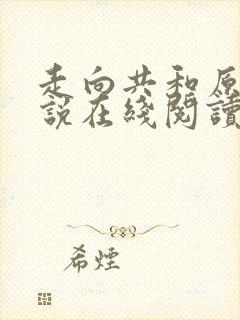 走向共和原
說在綫閱讀
希煙